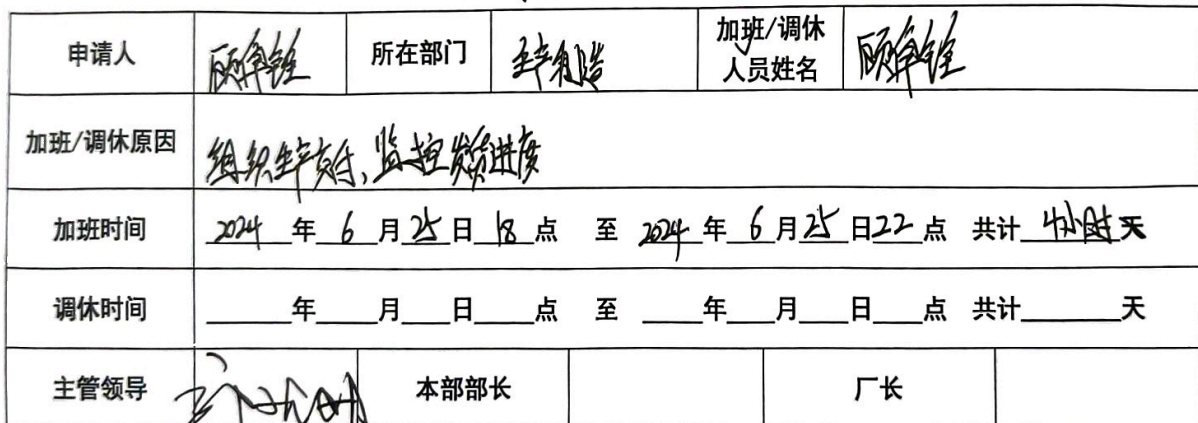 申请人 顾 所在部门 生产制造 加班/调休人员姓名 顾
加班/调休原因 组织生产交付、监控发货进度
加班时间 2024 年 6 月 25 日 18 点 至 2024 年 6 月 25 日 22 点 共计 4小时天
调休时间 ____年____月____日____点 至 ____年____月____日____点 共计____天
主管领导 本部部长 厂长